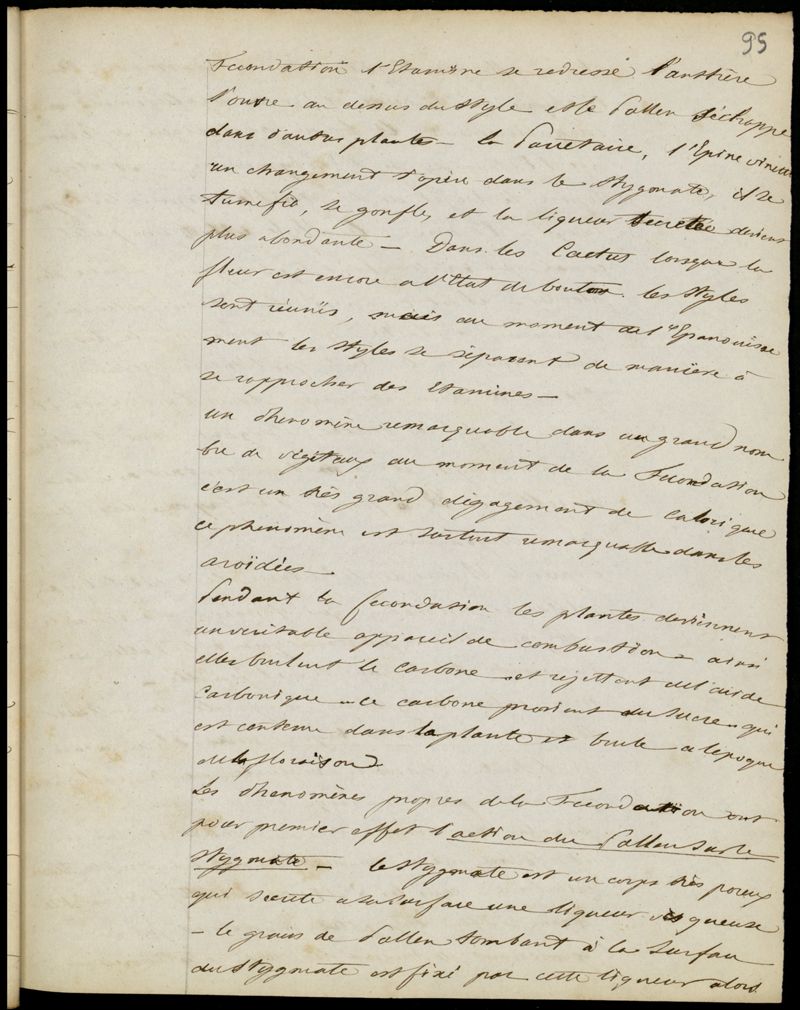 95
Fecondation l'Etamine se redresse l'anthère
s'ouvre au dessus du style et le Pollen s'échappe
dans d'autres plantes — la Parietaire, l'Epine vinette
un changement s'opère dans le stygmate, il se
tumefie, se gonfle, et la liqueur secretée devient
plus abondante — Dans les Cactus lorsque la
fleur est encore a l'Etat de bouton les styles
sont réunis, mais au moment de l'Epanouisse
ment les styles se séparent de manière à
se rapprocher des Etamines —
un phenomène remarquable dans un grand nom
bre de végétaux au moment de la Fecondation
c'est un très grand dégagement de calorique
ce phenomène est surtout remarquable dans les
aroïdées —
Pendant la fecondation les plantes deviennent
un veritable appareil de combustion — ainsi
elles brulent le carbone et rejettent de l'acide
Carbonique — ce carbone provient du sucre qui
est contenu dans la plante et brule a l'epoque
de la floraison
Les phenomènes propres de la Fecondation ont
pour premier effet l'action du Pollen sur le
stygmate — le stygmate est un corps très poreux
qui secrete a sa surface une liqueur visqueuse
— le grain de Pollen tombant à la surface
du stygmate est fixé par cette liqueur alors